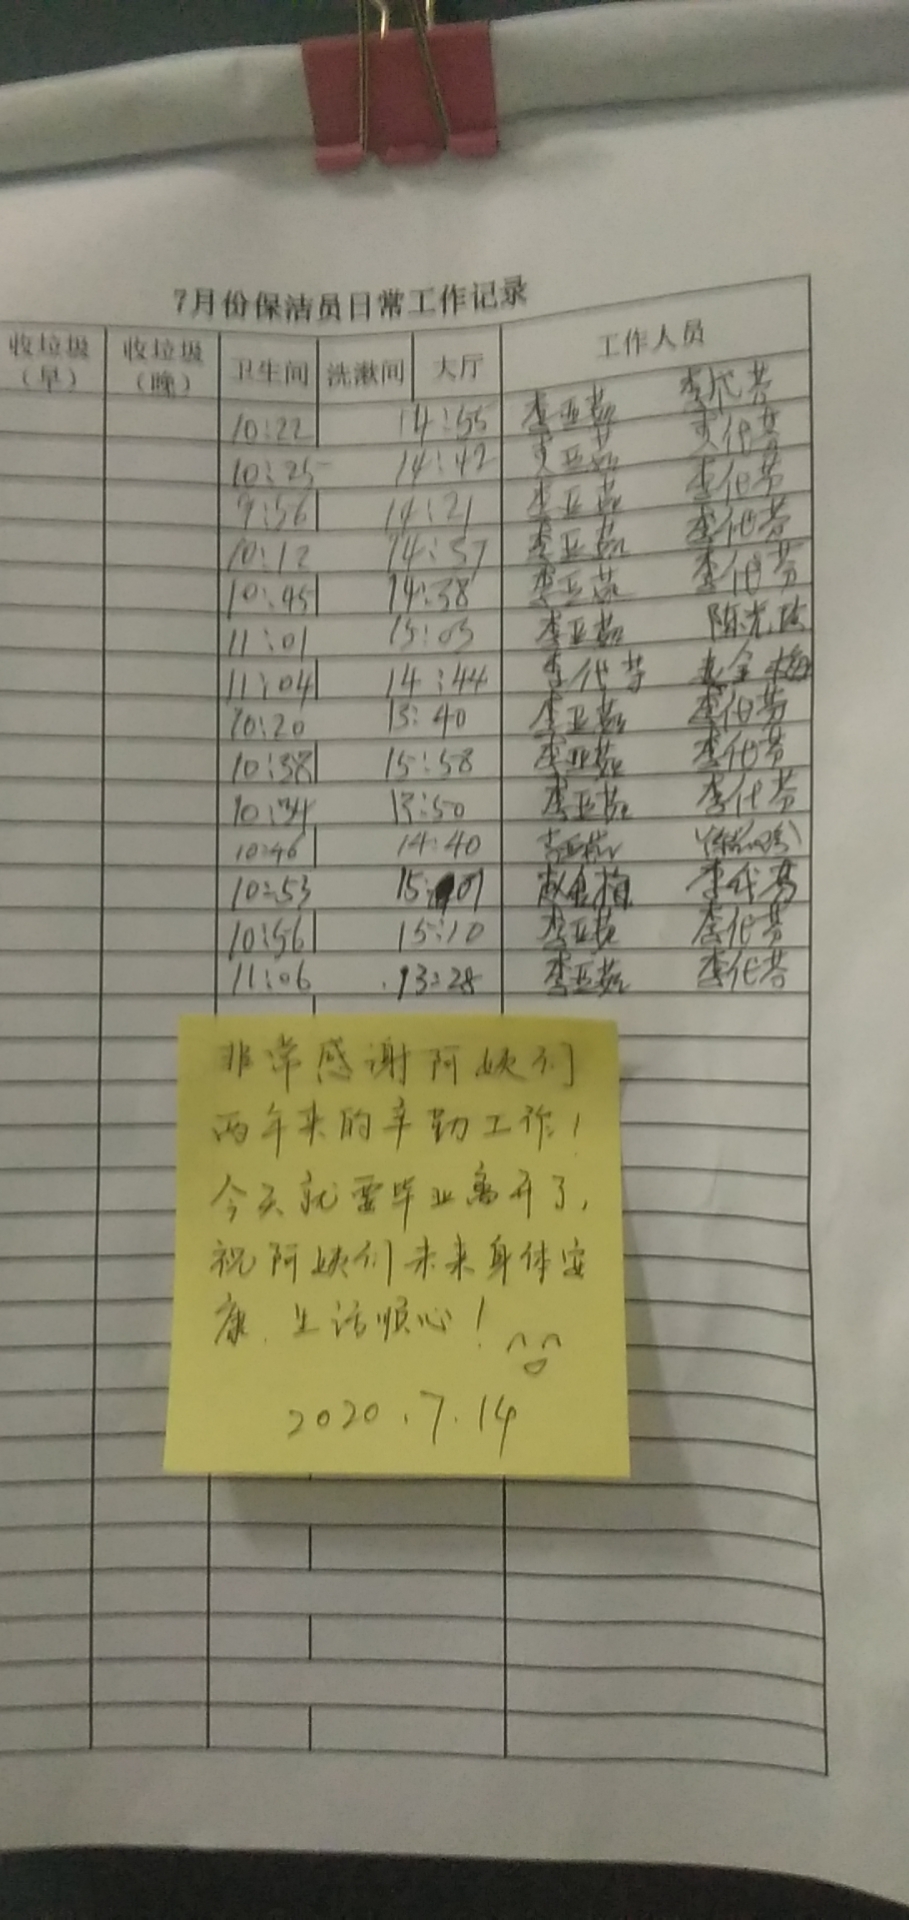 7月份保洁员日常工作记录
收垃圾（早） 收垃圾（晚） 卫生间 洗漱间 大厅 工作人员
10:22 14:55 李亚茹 李代芳
10:25 14:42 李亚茹 李代芳
9:56 14:21 李亚茹 李代芳
10:12 14:37 李亚茹 李代芳
10:45 14:38 李亚茹 李代芳
11:01 15:05 李亚茹
11:04 14:44 李代芳 赵金梅
10:20 13:40 李亚茹 李代芳
10:38 15:58 李亚茹 李代芳
10:34 13:50 李亚茹 李代芳
10:46 14:40 李亚茹
10:53 赵金梅 李代芳
10:56 15:10 李亚茹 李代芳
11:06 13:28 李亚茹 李代芳
非常感谢阿姨们
两年来的辛勤工作！
今天就要毕业离开了，
祝阿姨们未来身体安
康、生活顺心！
2020.7.14